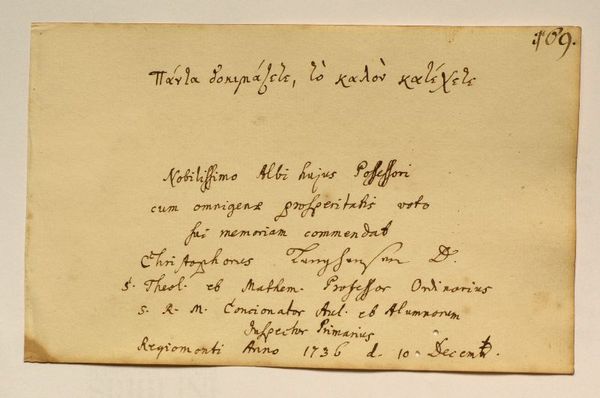 169.
Πάντα δοκιμάζετε, τὸ καλὸν κατέχετε
Nobilissimo Albi hujus Possessori
cum omnigenæ prosperitatis voto
sui memoriam commendat
Christophorus Langhansen D.
S. Theol. et Mathem. Professor Ordinarius
S. R. M. Concionator Aul. et Alumnorum
Inspector Primarius
Regiomonti Anno 1736 d. 10 Decemb.